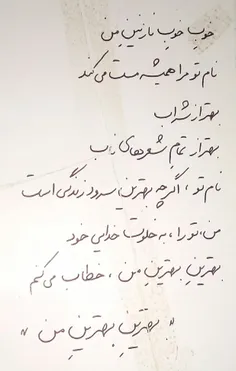 خوبِ خوبِ نازنینِ من
نام تو مرا همیشه مست می کند
بهتر از شراب
بهتر از تمامِ شعرهای ناب
نام تو، اگرچه بهترین سرود زندگی است
من، تو را، به خلوت خدایی خود
بهترینِ بهترینِ من، خطاب می کنم
«بهترینِ بهترینِ من»